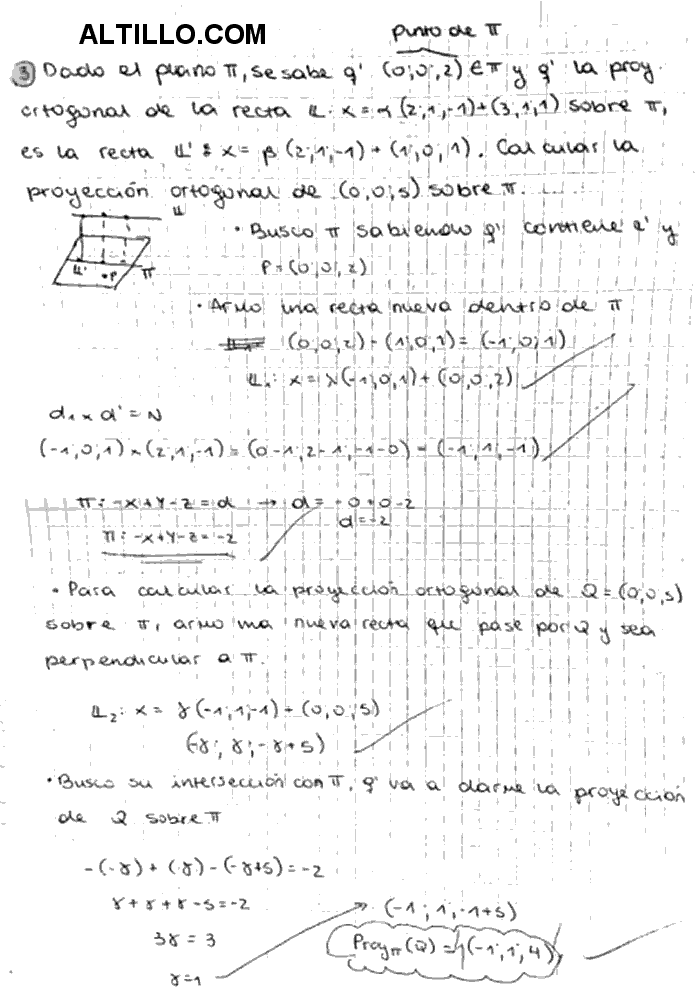 ALTILLO.COM
punto de π
③ Dado el plano π, se sabe q' (0;0;2) ∈ π y q' la proy.
ortogonal de la recta L: x = α (2,1,-1) + (3,1,1) sobre π,
es la recta L': x = β (2;1;-1) + (1;0;1). Calcular la
proyección ortogonal de (0,0;5) sobre π.
L
L' P π
• Busco π sabiendo q' contiene a' y
P = (0;0;2)
• Armo una recta nueva dentro de π
(0;0;2) - (1;0;1) = (-1;0;1)
L₁: x = λ(-1;0;1) + (0;0;2)
d₁ x d' = N
(-1;0;1) x (2;1;-1) = (0-1;2-1;-1-0) = (-1;1;-1)
π: -x+y-z = d → d = -0+0-2
d = -2
π: -x+y-z = -2
• Para calcular la proyección ortogonal de Q = (0;0;5)
sobre π, armo una nueva recta que pase por Q y sea
perpendicular a π.
L₂: x = γ(-1;1;-1) + (0;0;5)
(-γ; γ; -γ+5)
• Busco su intersección con π, q' va a darme la proyección
de Q sobre π
-(-γ) + (γ) - (-γ+5) = -2
γ + γ + γ - 5 = -2
3γ = 3
γ = 1
(-1; 1; -1+5)
Proy π (Q) = (-1; 1; 4)